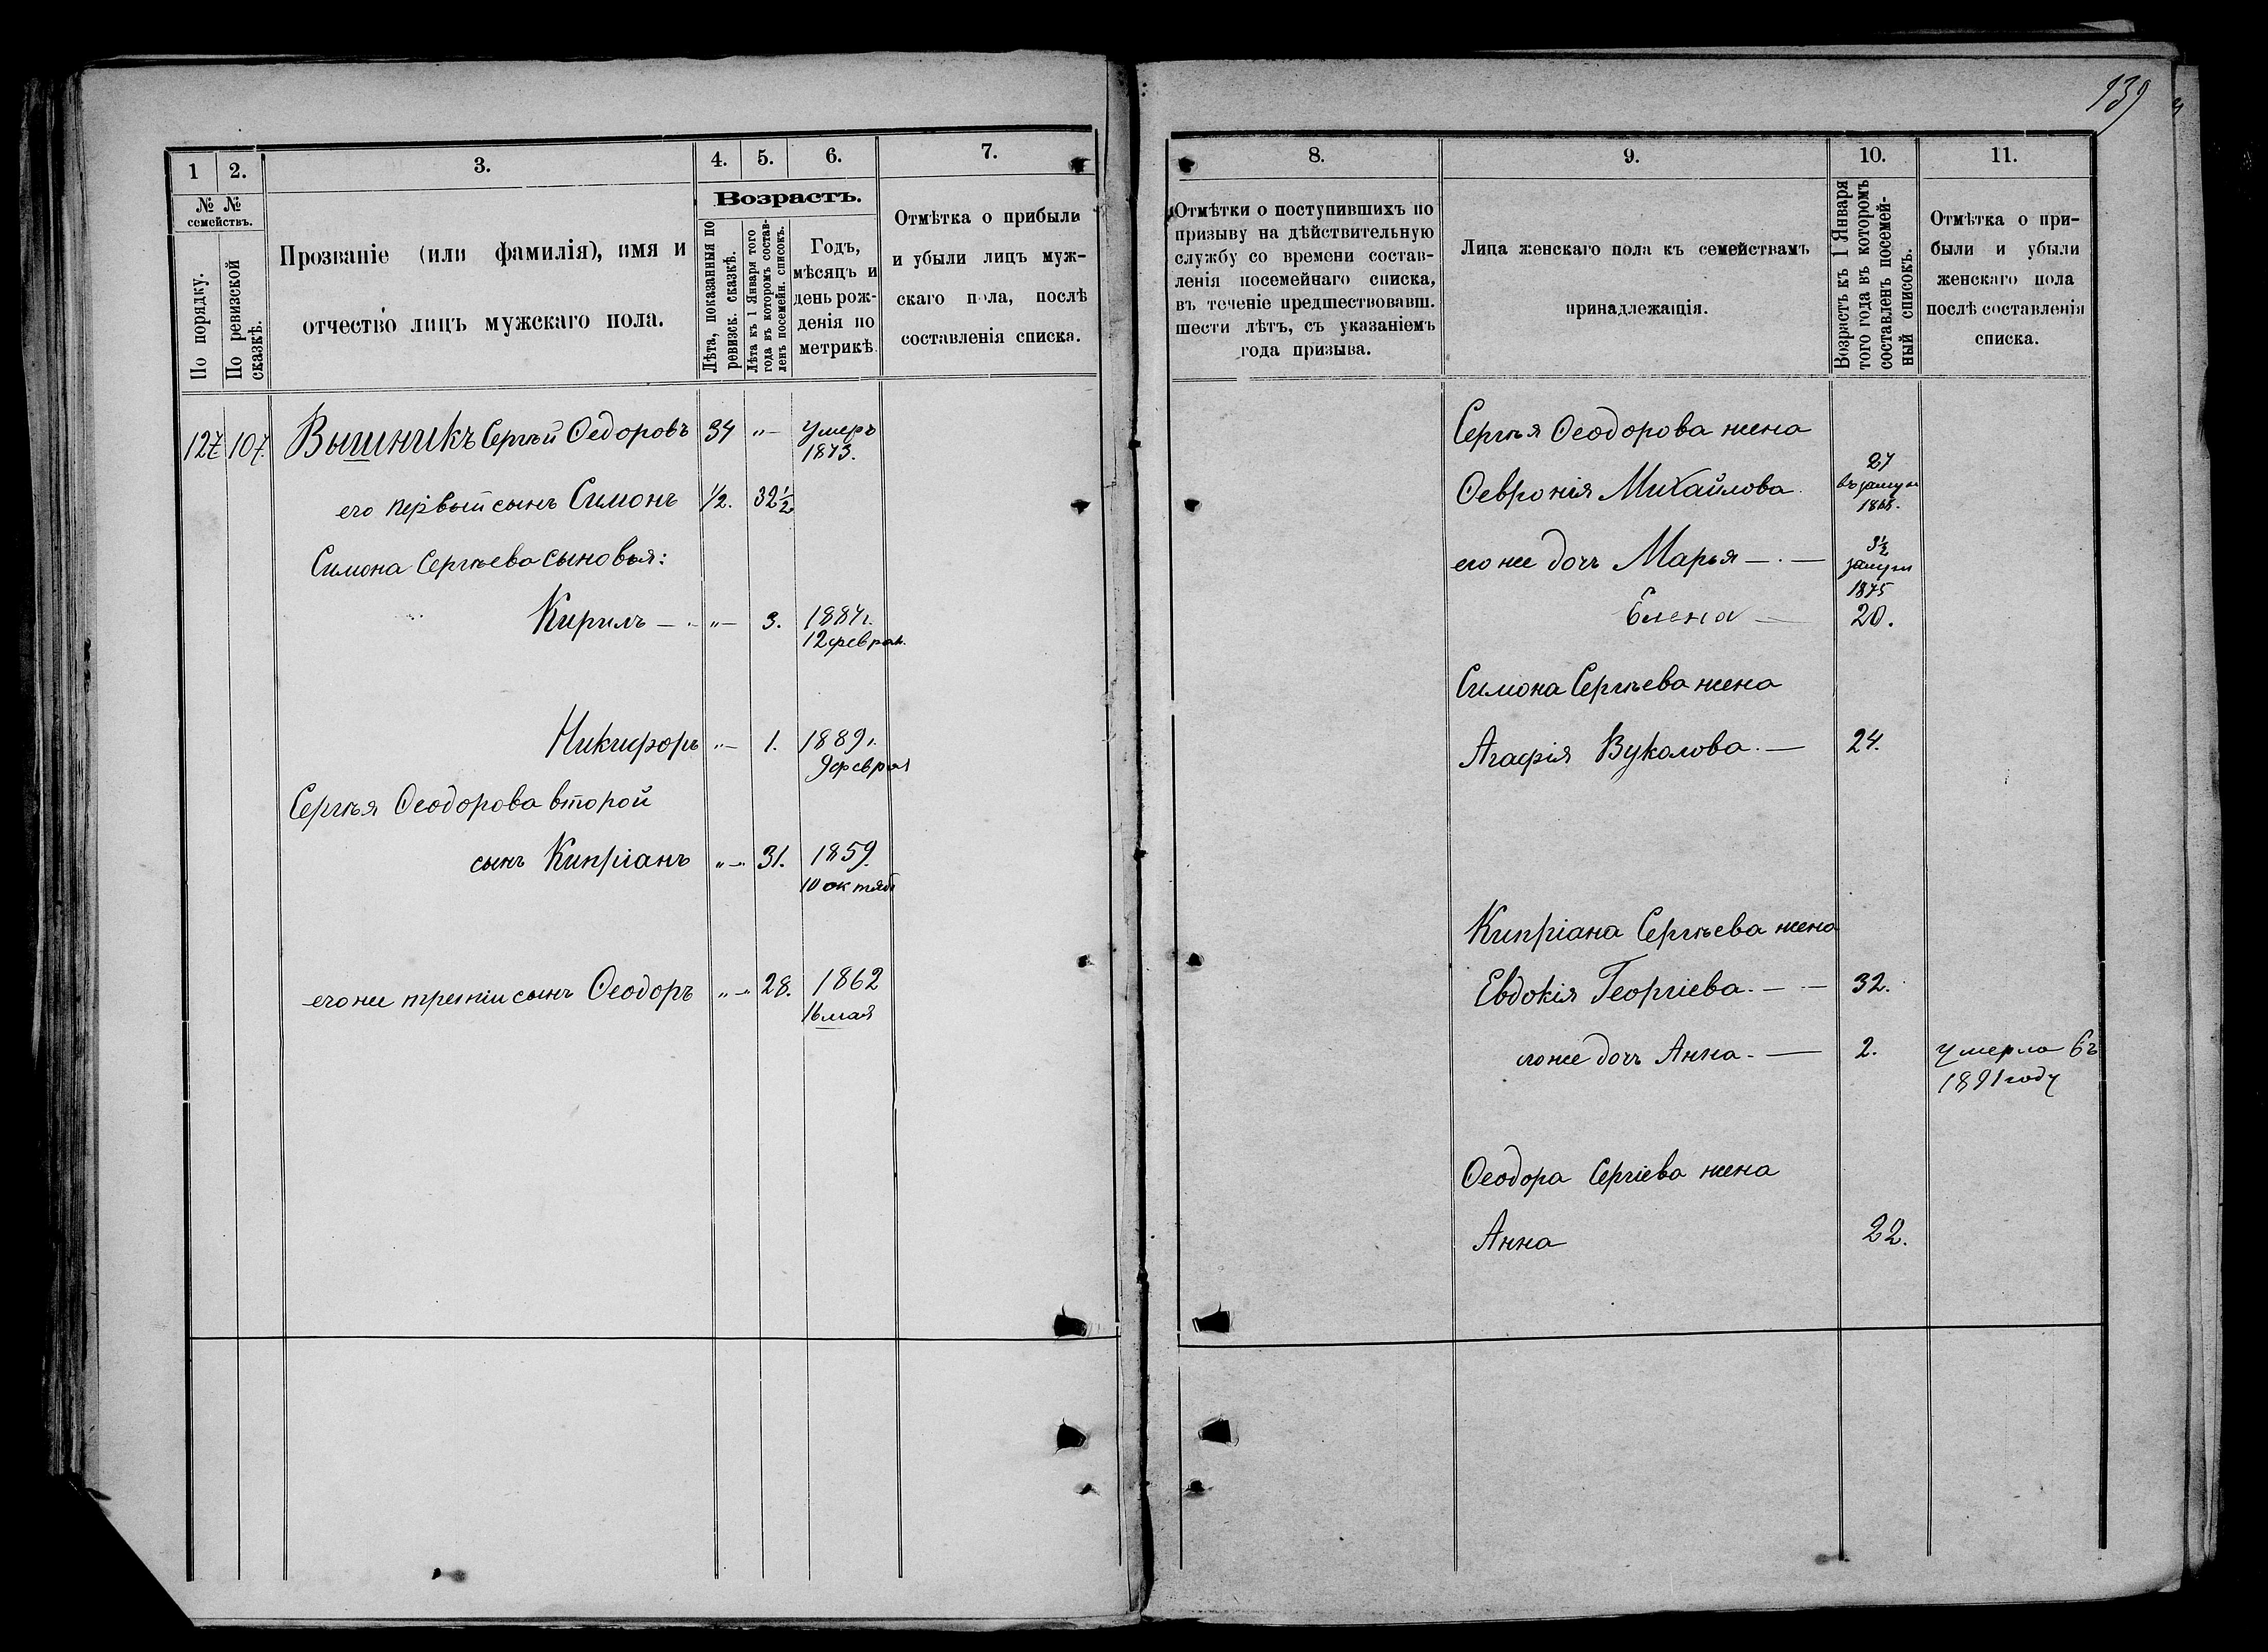 139
1
2.
3.
4.
5.
6.
7.
№ №
семействъ.
По порядку.
По ревизской
сказкѣ.
Прозваніе (или фамилія), имя и
отчество лицъ мужскаго пола.
Возрастъ.
Лѣта, показанныя по
ревизск. сказкѣ.
Лѣта къ 1 Января того
года въ которомъ состав-
ленъ посемейн. списокъ.
Годъ,
мѣсяцъ и
день рож-
денія по
метрикѣ
Отмѣтка о прибыли
и убыли лицъ муж-
скаго пола, послѣ
составленія списка.
127 107. Вышникъ Сергѣй Ѳедоровъ 34 „— умеръ
1873.
его первый сынъ Симонъ 1/2. 32 1/2
Симона Сергѣева сыновья:
Кирилъ — „— 3. 1887г.
12 феврал.
Никифоръ „— 1. 1889г.
9 феврал
Сергѣя Ѳеодорова второй
сынъ Кипріанъ „— 31. 1859.
10 октяб
его же третій сынъ Ѳеодоръ „— 28. 1862
16 мая
8.
9.
10.
11.
Отмѣтки о поступившихъ по
призыву на дѣйствительную
службу со времени состав-
ленія посемейнаго списка,
въ теченіе предшествовавш.
шести лѣтъ, съ указаніемъ
года призыва.
Лица женскаго пола къ семействамъ
принадлежащія.
Возрастъ къ 1 Января
того года въ которомъ
составленъ посемей-
ный списокъ.
Отмѣтка о при-
были и убыли
женскаго пола
послѣ составленія
списка.
Сергѣя Ѳеодорова жена
Ѳевронія Михайлова. 27
въ замуж
его же дочь Марья — . — 3 1/2
замуж
1875
Елена — 20.
Симона Сергѣева жена
Агафія Вуколова. — 24.
Кипріана Сергѣева жена
Евдокія Георгіева. — 32.
его же дочь Анна. — 2. умерла въ
1891 году
Ѳеодора Сергіева жена
Анна 22.